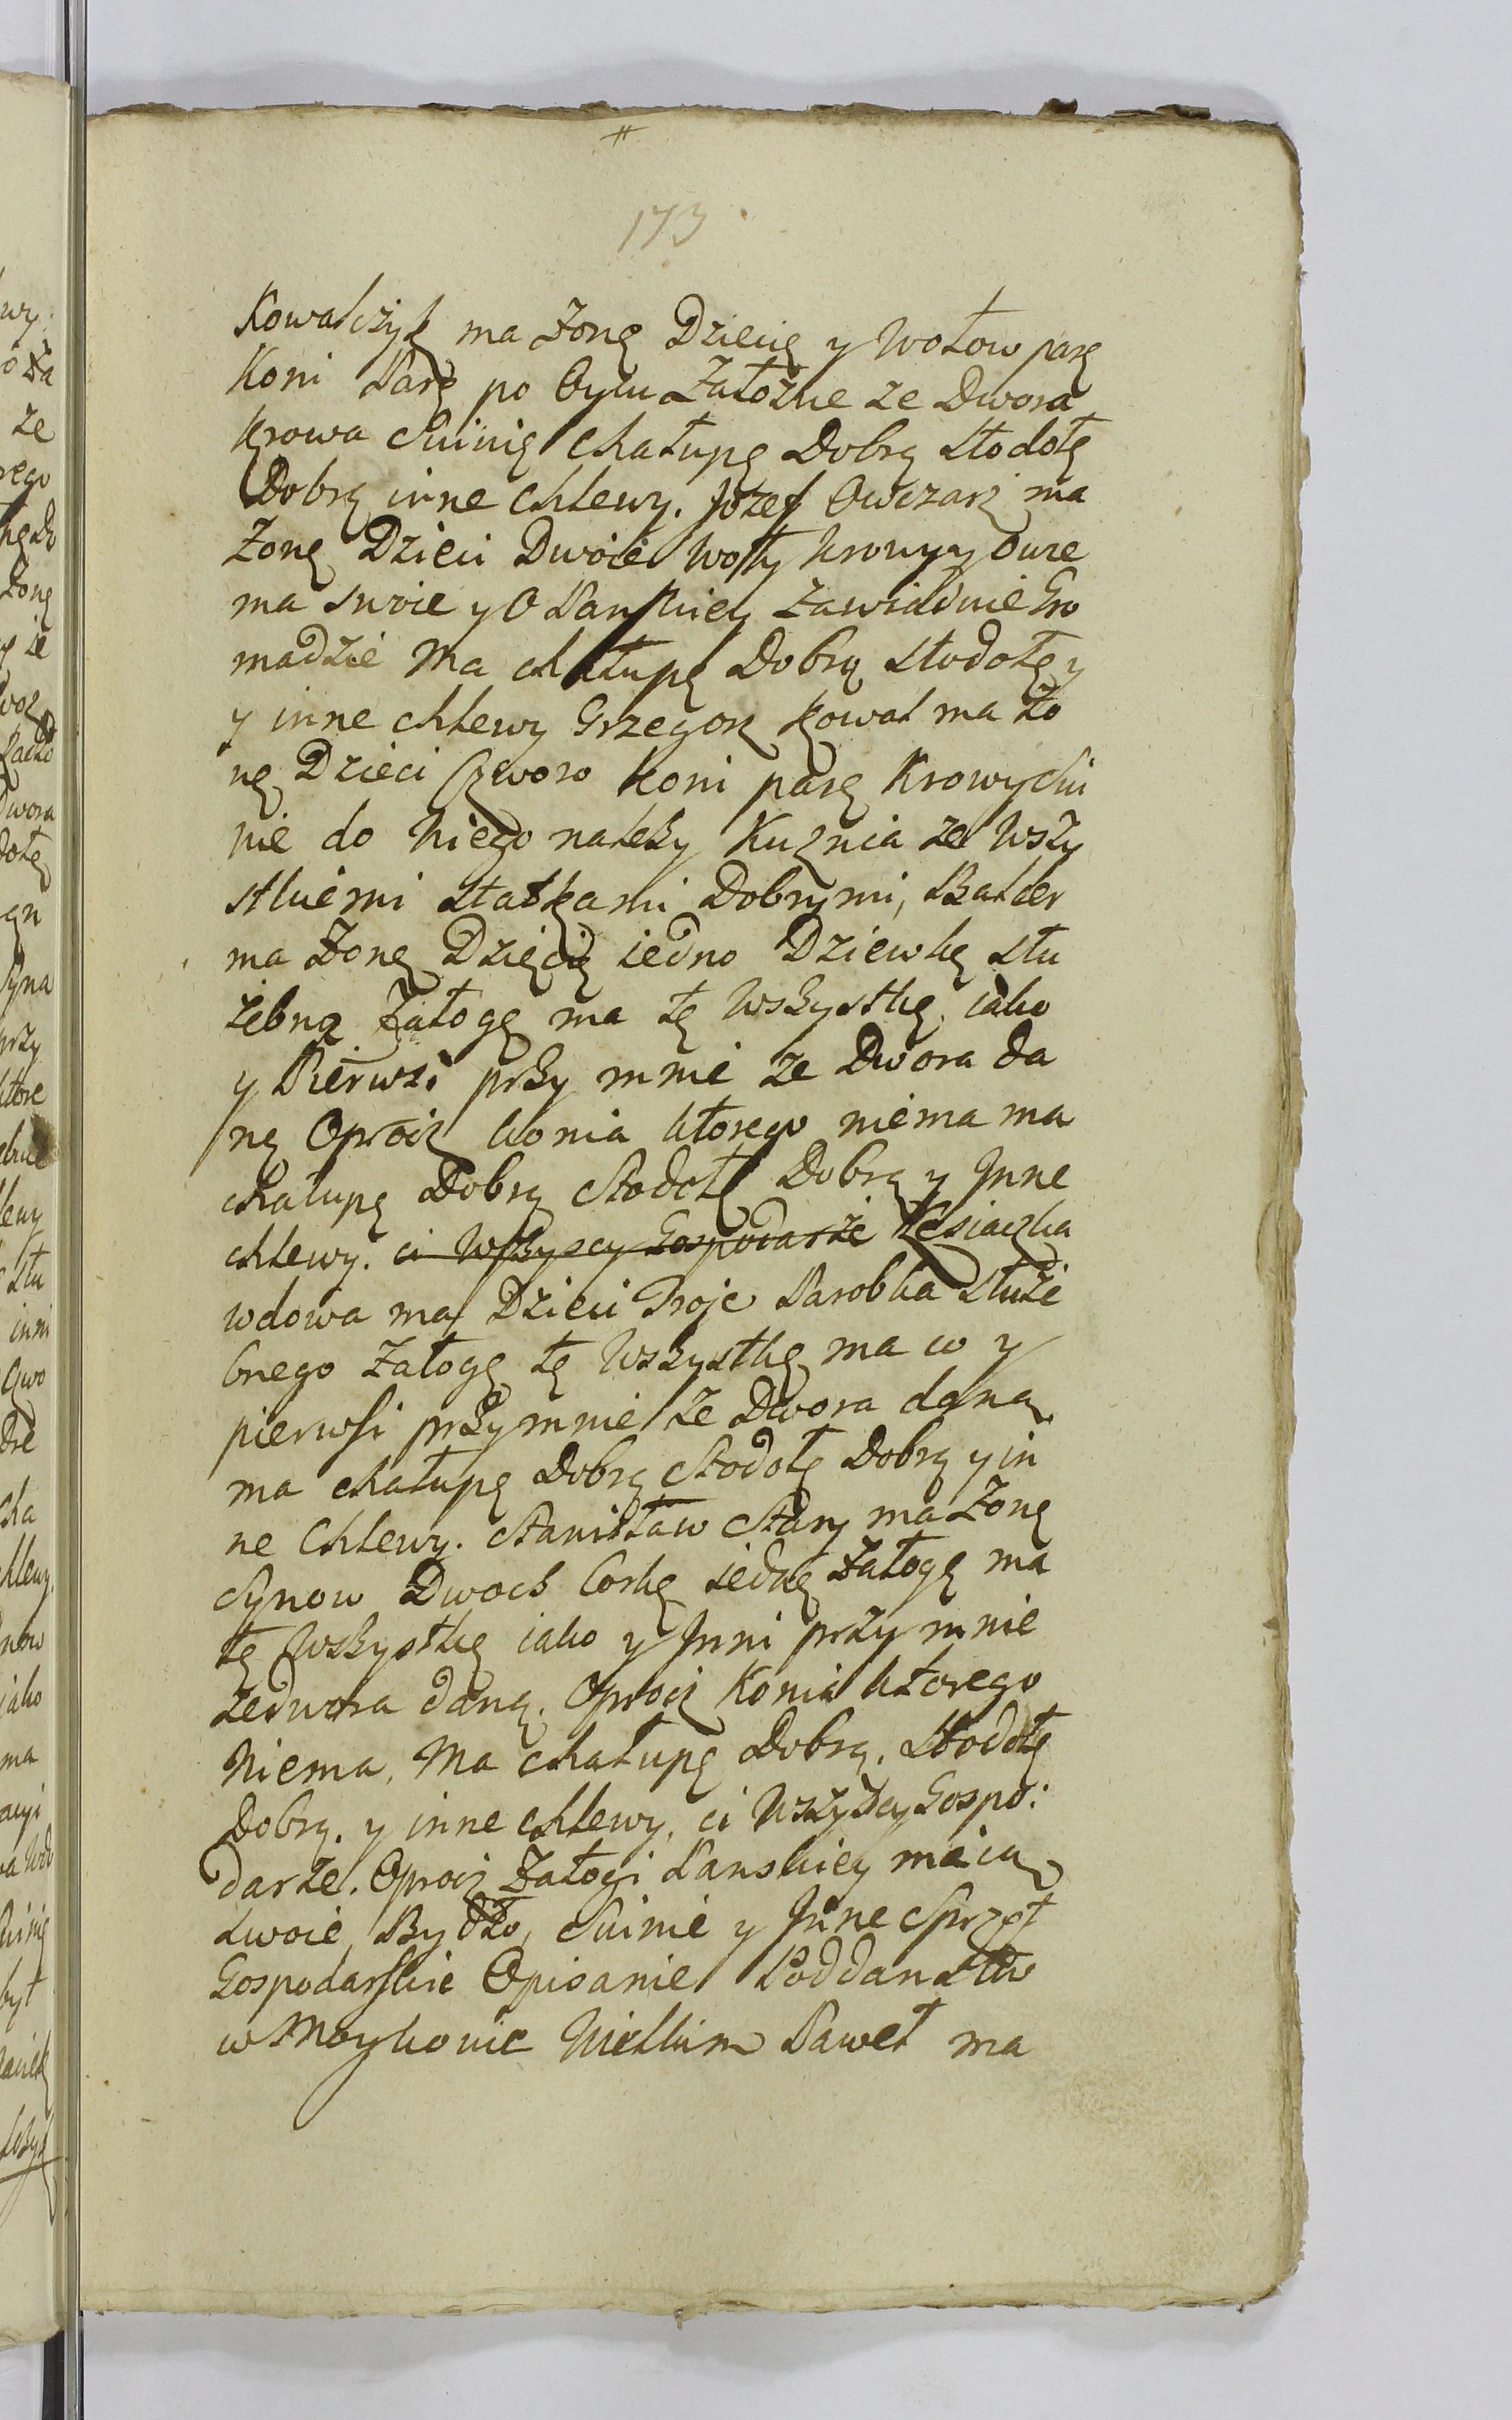 173
Kowalczyk ma Zonę Dziecię y Wołow parę
Koni Parę po Oycu Załozne ze Dwora
krowa Swinię Chałupę Dobrą Stodołę
Dobrą inne Chlewy. Jozef Owczarz ma
Zonę Dzieci Dwoie Woły krowy y Owce
ma swoie y O Panskiey zawiaduie Gro
madzie Ma chałupę Dobrą Stodołę y
y inne chlewy Grzegorz kowal ma Żo
nę Dzieci Czworo koni parę Krowy Swi
nie do Niego nalezy Kuznia ze Wszy
stkiemi Statkami Dobrymi, Balcer
ma Zonę Dziecię iedno Dziewkę Słu
żebną Załogę ma tę Wszystkę iako
y Pierwsi przy mnie ze Dwora da
ną Oprocz konia ktorego niema ma
chałupę Dobrą Stodołę Dobrą y Inne
chlewy. ci Wszyscy Gospodarże Kęsiaczka
wdowa ma Dzieci Troje Parobka Służe
bnego Załogę tę Wszystkę ma co y
pierwsi przy mnie ze Dwora daną
ma chałupę Dobrą Stodołę Dobrą y in
ne Chlewy. Stanisław Stary ma Zonę
Synow Dwoch Corkę iednę Załogę ma
tę Wszystkę iako y Inni przy mnie
zedwora daną. Oprocz Konia ktorego
Niema. Ma chałupę Dobrą. Stodołę
Dobrą. y inne chlewy. ci Wszyscy Gospo:
darze. Oprocz Załogi Panskiey maią
swoie, Bydło, Swinie y Inne Sprzęt
Gospodarskie Opisanie Poddanstw
w Moykowie Wielkim Paweł ma